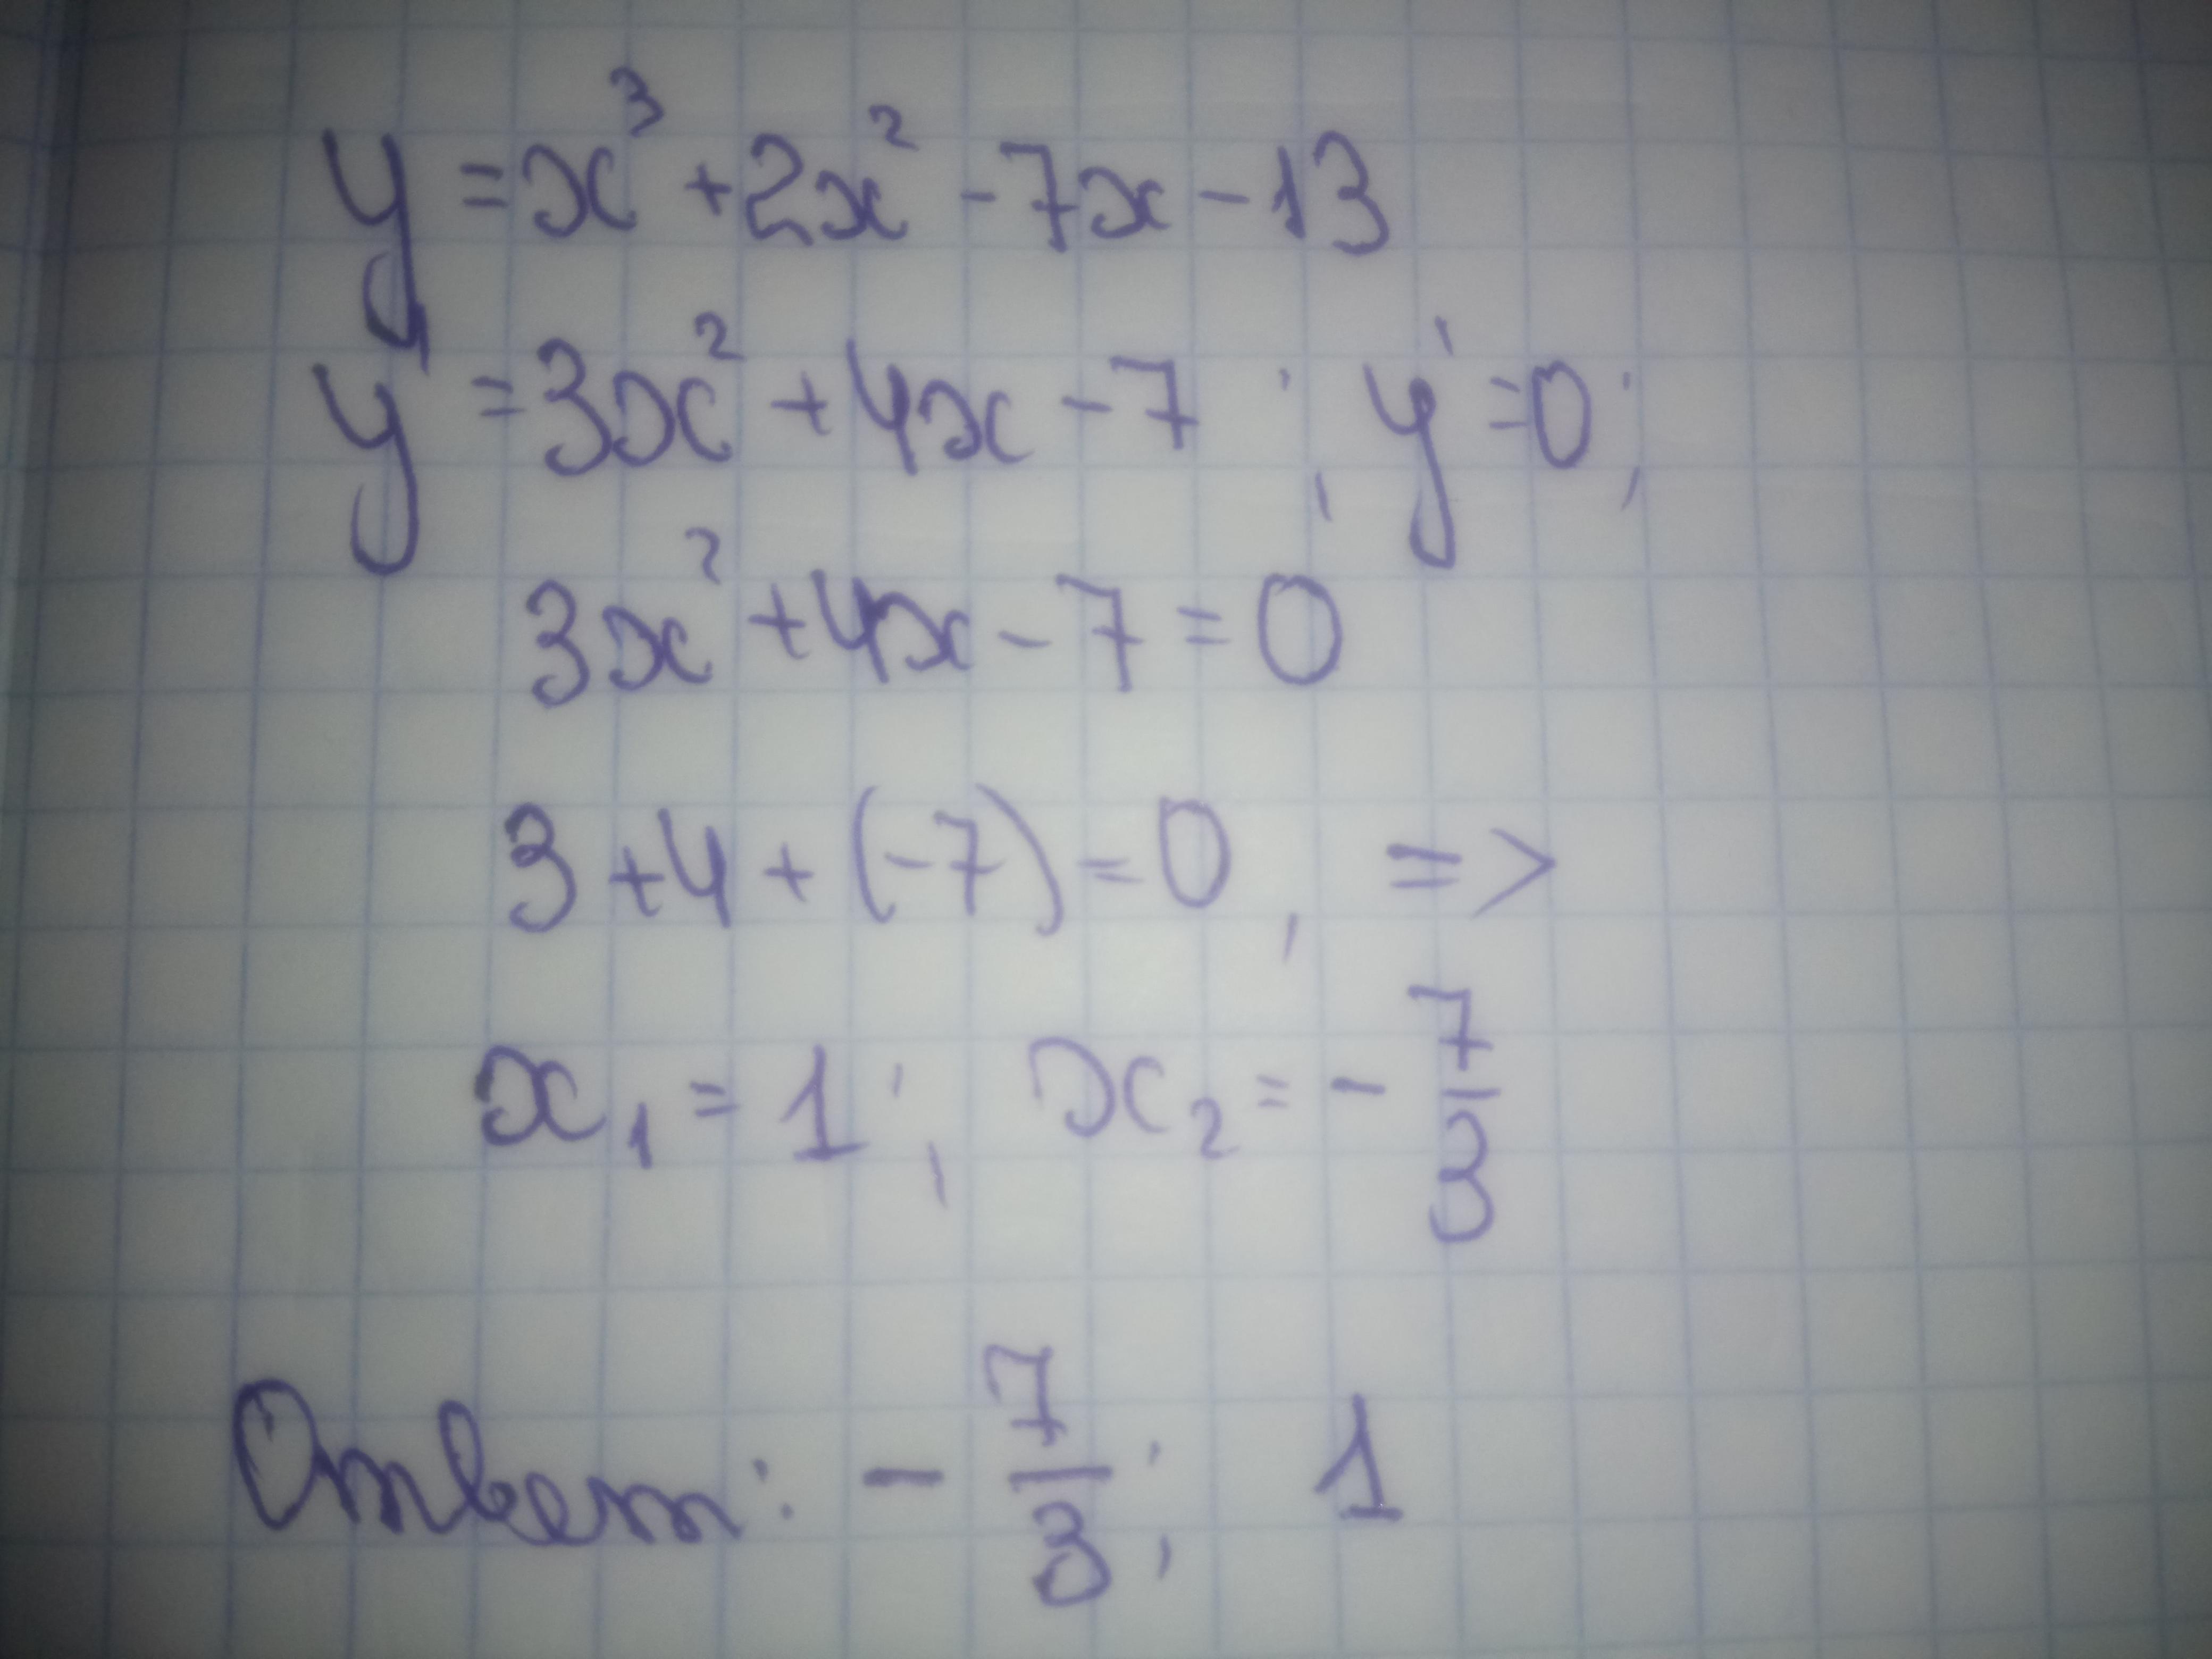 y = x³ + 2x² - 7x - 13
y' = 3x² + 4x - 7 ; y' = 0 ;
3x² + 4x - 7 = 0
3 + 4 + (-7) = 0, =>
x₁ = 1 ; x₂ = - 7/3
Ответ: - 7/3 ; 1